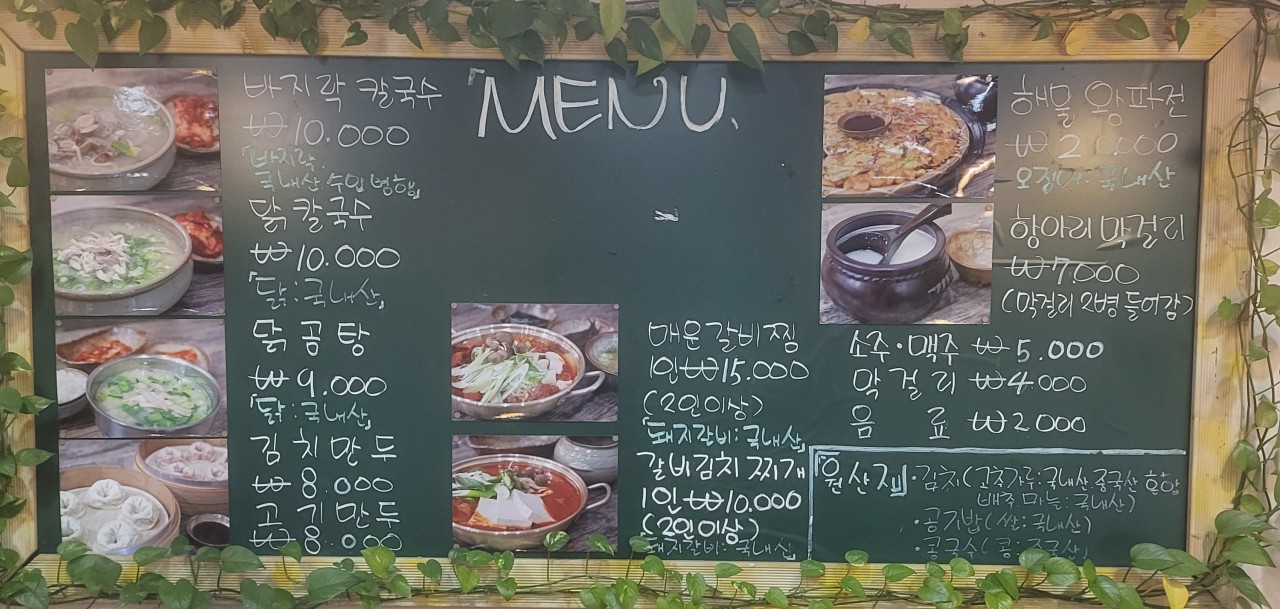 「MENU」
바지락 칼국수
₩10.000
「바지락:
국내산 수입 병행」
닭칼국수
₩10.000
「닭:국내산」
닭곰탕
₩9.000
「닭:국내산」
김치만두
₩8.000
고기만두
₩8.000
매운갈비찜
1인₩15.000
(2인이상)
「돼지갈비:국내산」
갈비김치찌개
1인₩10.000
(2인이상)
돼지갈비:국내산」
해물왕파전
₩2 0.000
오징어:국내산
항아리막걸리
₩7.000
(막걸리 2병 들어감)
소주·맥주 ₩5.000
막걸리 ₩4.000
음 료 ₩2000
「원산지」·김치(고춧가루:국내산 중국산 혼합
배추 마늘:국내산)
·공기밥(쌀:국내산)
·콩국수(콩:중국산)